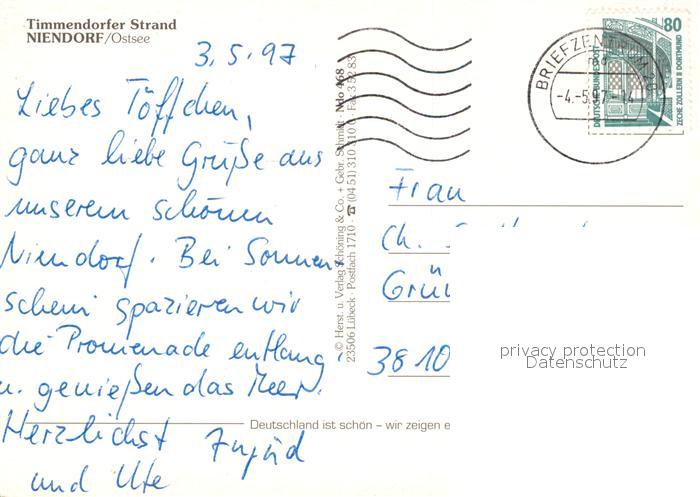 Timmendorfer Strand
NIENDORF/Ostsee
3.5.97
Liebes Töffchen,
ganz liebe Grüße aus
unserem schönen
Niendorf. Bei Sonnen-
schein spazieren wir
die Promenade entlang
u. genießen das Meer.
Herzlichst
und Ute
© Herst. u. Verlag Schöning & Co. + Gebr. Schmidt
23506 Lübeck · Postfach 1710 · ☎ (04 51) 310 310
Deutschland ist schön – wir zeigen e
80
DEUTSCHE BUNDESPOST
ZECHE ZOLLERN II DORTMUND
BRIEFZENTRUM
-4.-5.97
Frau
Ch.
Grü
3810
privacy protection
Datenschutz